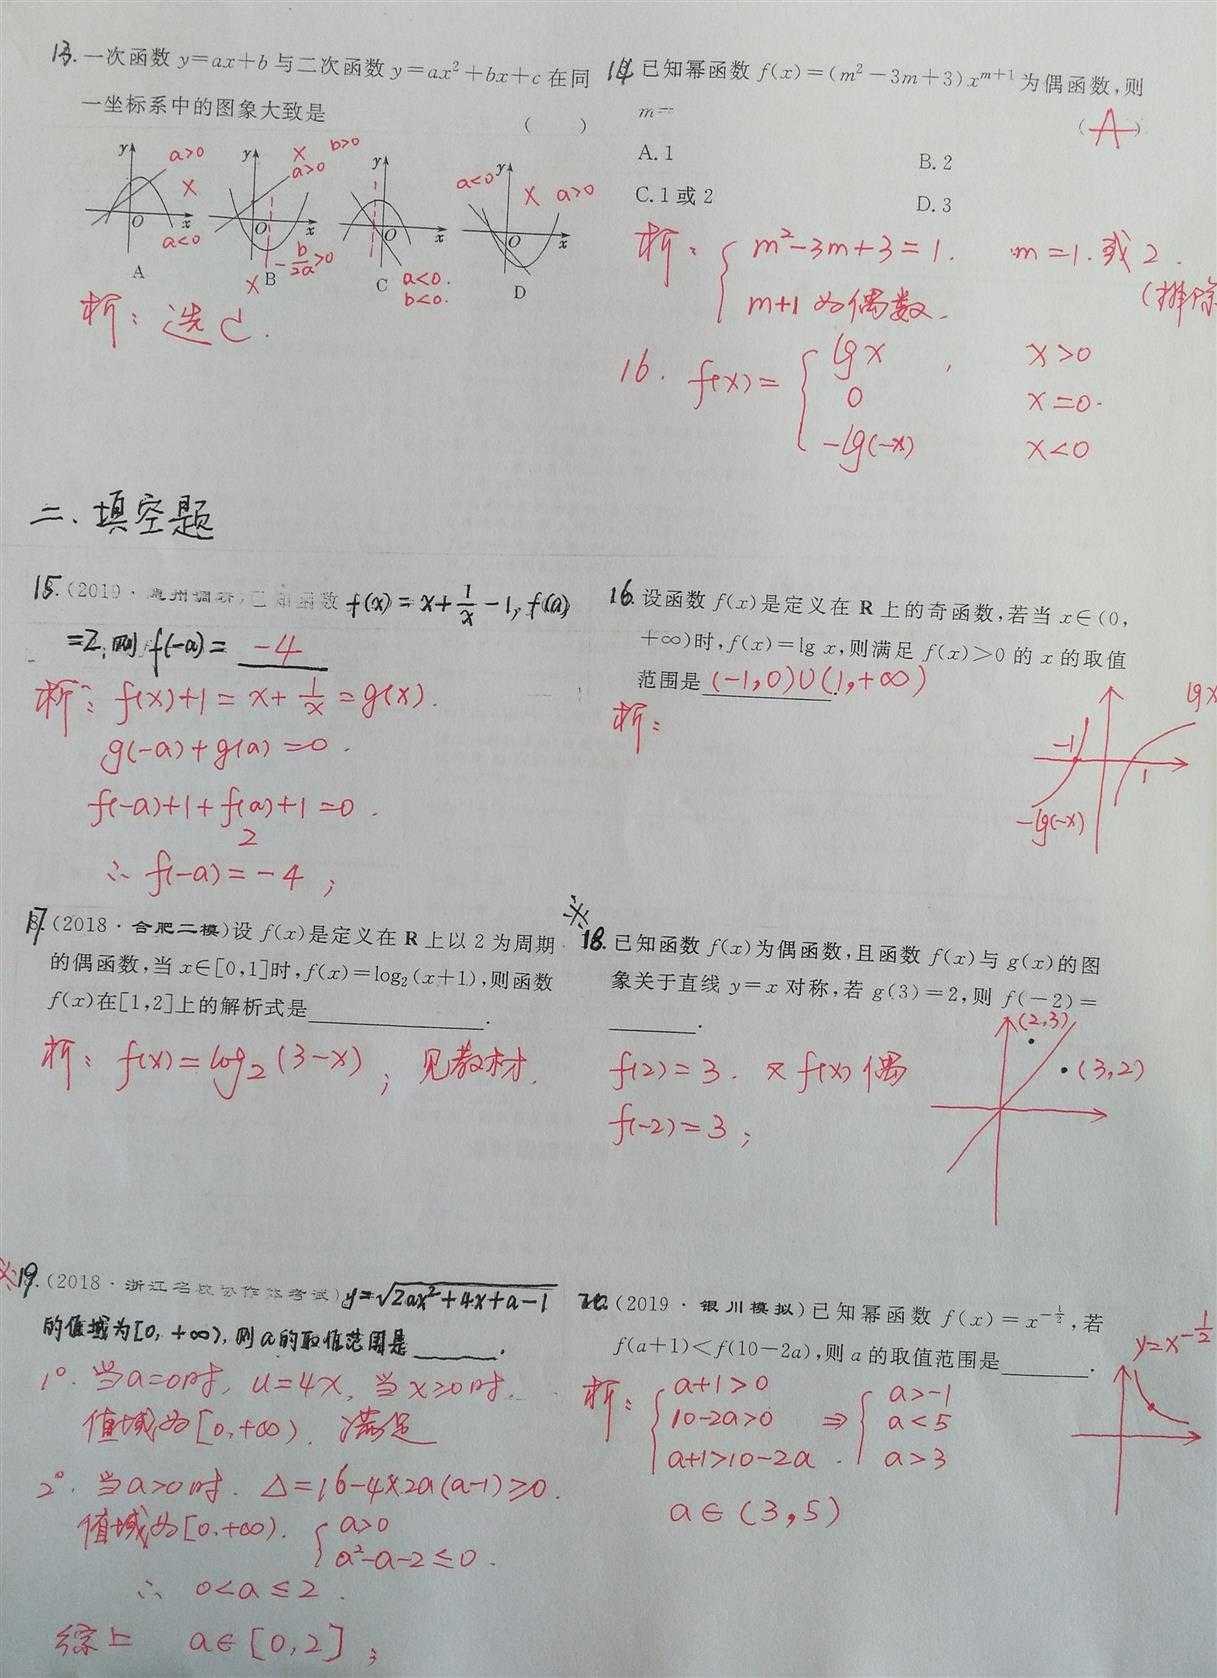 13. 一次函数 y=ax+b 与二次函数 y=ax²+bx+c 在同
一坐标系中的图象大致是 ( )
y a>0 x a<0 O x A
y x b>0 a>0 O x -b/2a>0 x B
y O x C a<0. b<0.
a<0 y x a>0 O x D
析：选 C.
14. 已知幂函数 f(x)=(m²-3m+3)x^{m+1} 为偶函数,则
m= (A)
A. 1 B. 2
C. 1 或 2 D. 3
析： { m²-3m+3=1. m=1.或 2.
m+1 为偶数. (排除
16. f(x)= { lgx , x>0
0 x=0.
-lg(-x) x<0
二、填空题
15. (2019· 州调研,已知函数 f(x)=x+1/x-1, f(a)
=2,则 f(-a)= -4
析： f(x)+1=x+1/x=g(x).
g(-a)+g(a)=0.
f(-a)+1+f(a)+1=0.
2
∴ f(-a)=-4;
16. 设函数 f(x)是定义在 R 上的奇函数,若当 x∈(0,
+∞)时,f(x)=lg x,则满足 f(x)>0 的 x 的取值
范围是 (-1,0)∪(1,+∞).
析：
lgx
-1 1
-lg(-x)
17. (2018·合肥二模)设 f(x)是定义在 R 上以 2 为周期
的偶函数,当 x∈[0,1]时,f(x)=log₂(x+1),则函数
f(x)在[1,2]上的解析式是________.
析： f(x)=log₂(3-x); 见教材.
18. 已知函数 f(x)为偶函数,且函数 f(x)与 g(x)的图
象关于直线 y=x 对称,若 g(3)=2,则 f(-2)=
________.
(2,3)
(3,2)
f(2)=3. 又 f(x) 偶
f(-2)=3;
19. (2018·浙江名校协作体考试) y=√(2ax²+4x+a-1)
的值域为[0,+∞),则 a的取值范围是____.
1°. 当 a=0时, u=4x, 当 x≥0时,
值域为[0,+∞). 满足
2°. 当 a>0时. Δ=16-4×2a(a-1)≥0.
值域为[0,+∞). { a>0
a²-a-2≤0.
∴ 0<a≤2.
综上 a∈[0,2];
20. (2019·银川模拟)已知幂函数 f(x)=x^{-1/2},若
f(a+1)<f(10-2a),则 a 的取值范围是________.
y=x^{-1/2}
析： { a+1>0 { a>-1
10-2a>0 ⇒ a<5
a+1>10-2a. a>3
a∈(3,5)